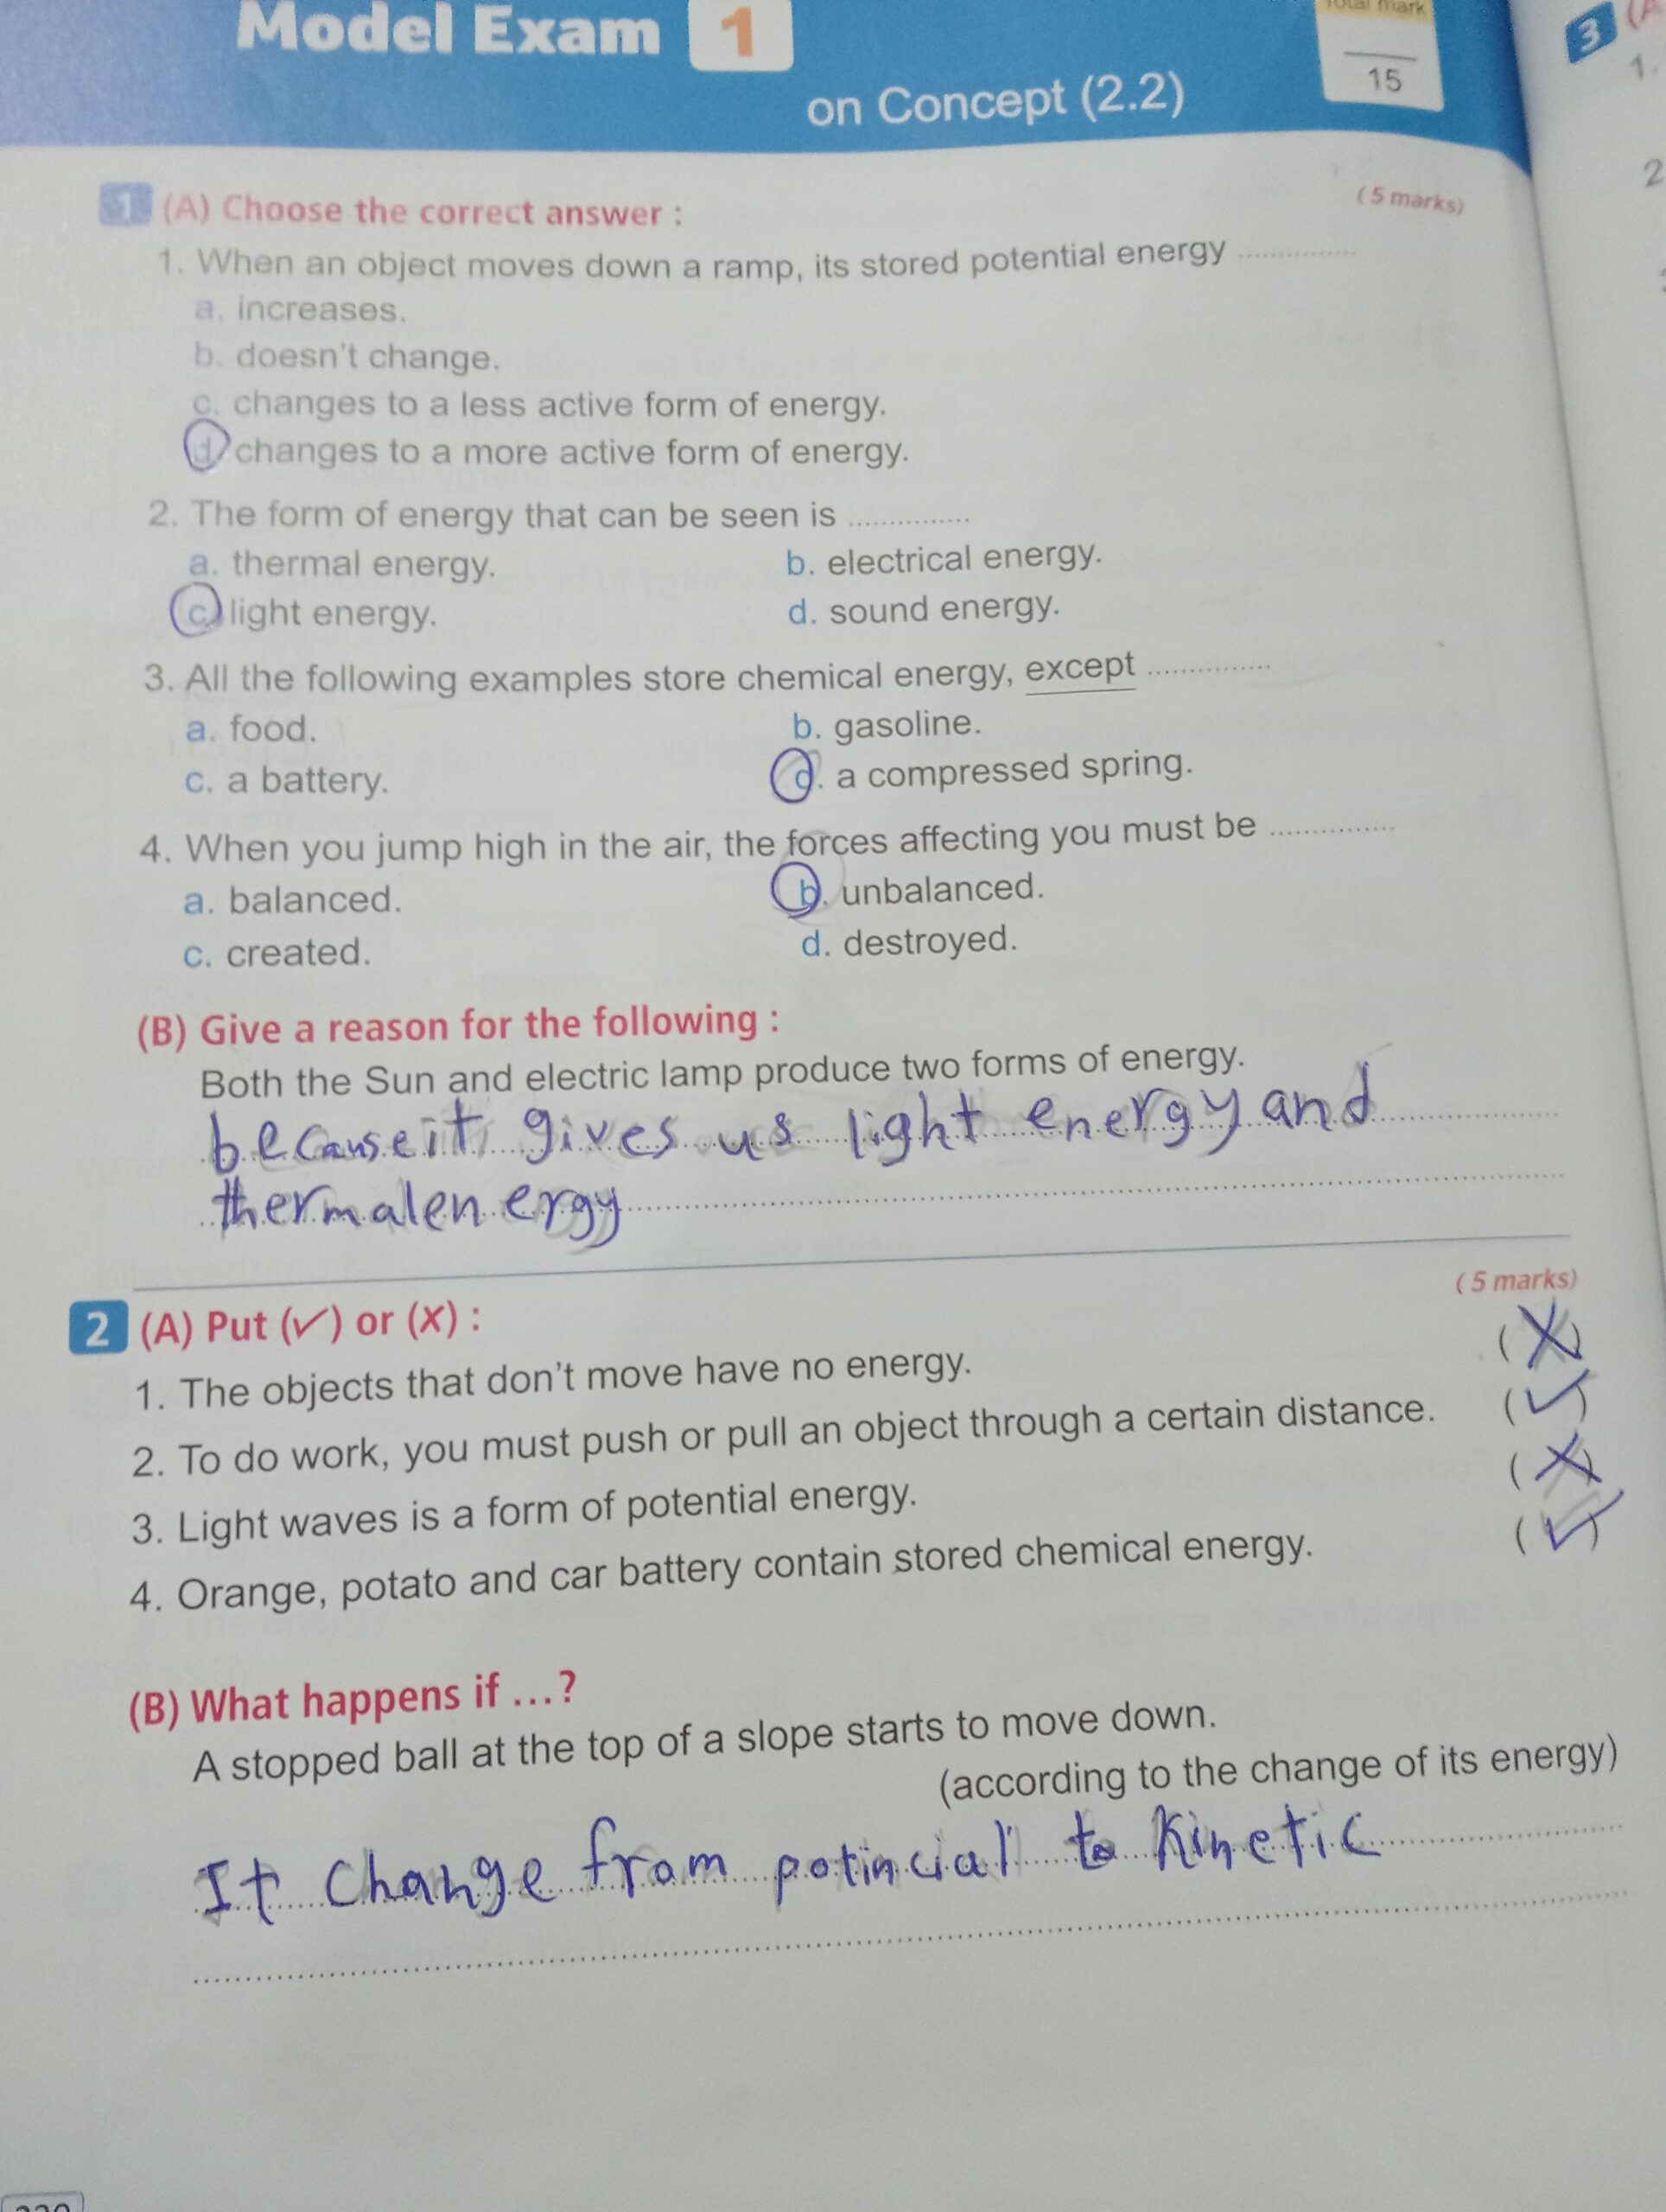 Model Exam 1
Total mark
15
on Concept (2.2)
3 (A
1.
2
1 (A) Choose the correct answer :
(5 marks)
1. When an object moves down a ramp, its stored potential energy ...............
a. increases.
b. doesn't change.
c. changes to a less active form of energy.
d. changes to a more active form of energy.
2. The form of energy that can be seen is ...............
a. thermal energy. b. electrical energy.
c. light energy. d. sound energy.
3. All the following examples store chemical energy, except ...............
a. food. b. gasoline.
c. a battery. d. a compressed spring.
4. When you jump high in the air, the forces affecting you must be ...............
a. balanced. b. unbalanced.
c. created. d. destroyed.
(B) Give a reason for the following :
Both the Sun and electric lamp produce two forms of energy.
because it gives us light energy and
thermal energy
(5 marks)
2 (A) Put (✓) or (✗) :
1. The objects that don't move have no energy. (X)
2. To do work, you must push or pull an object through a certain distance. (✓)
3. Light waves is a form of potential energy. (X)
4. Orange, potato and car battery contain stored chemical energy. (✓)
(B) What happens if ...?
A stopped ball at the top of a slope starts to move down.
(according to the change of its energy)
It change from potincial to Kinetic